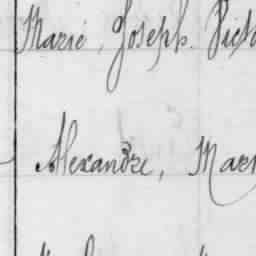 Marie, Joseph. Vict
Alexandre, Mar